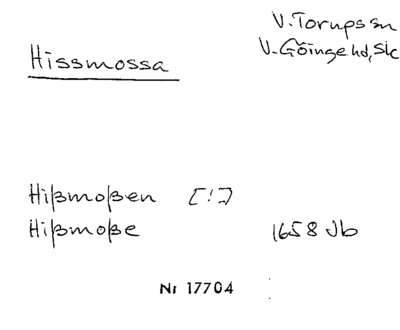 V. Torups sn
V. Göinge hd, Sk
Hissmossa
Hißmoßen [!]
Hißmoße 1658 Jb
Nr 17704